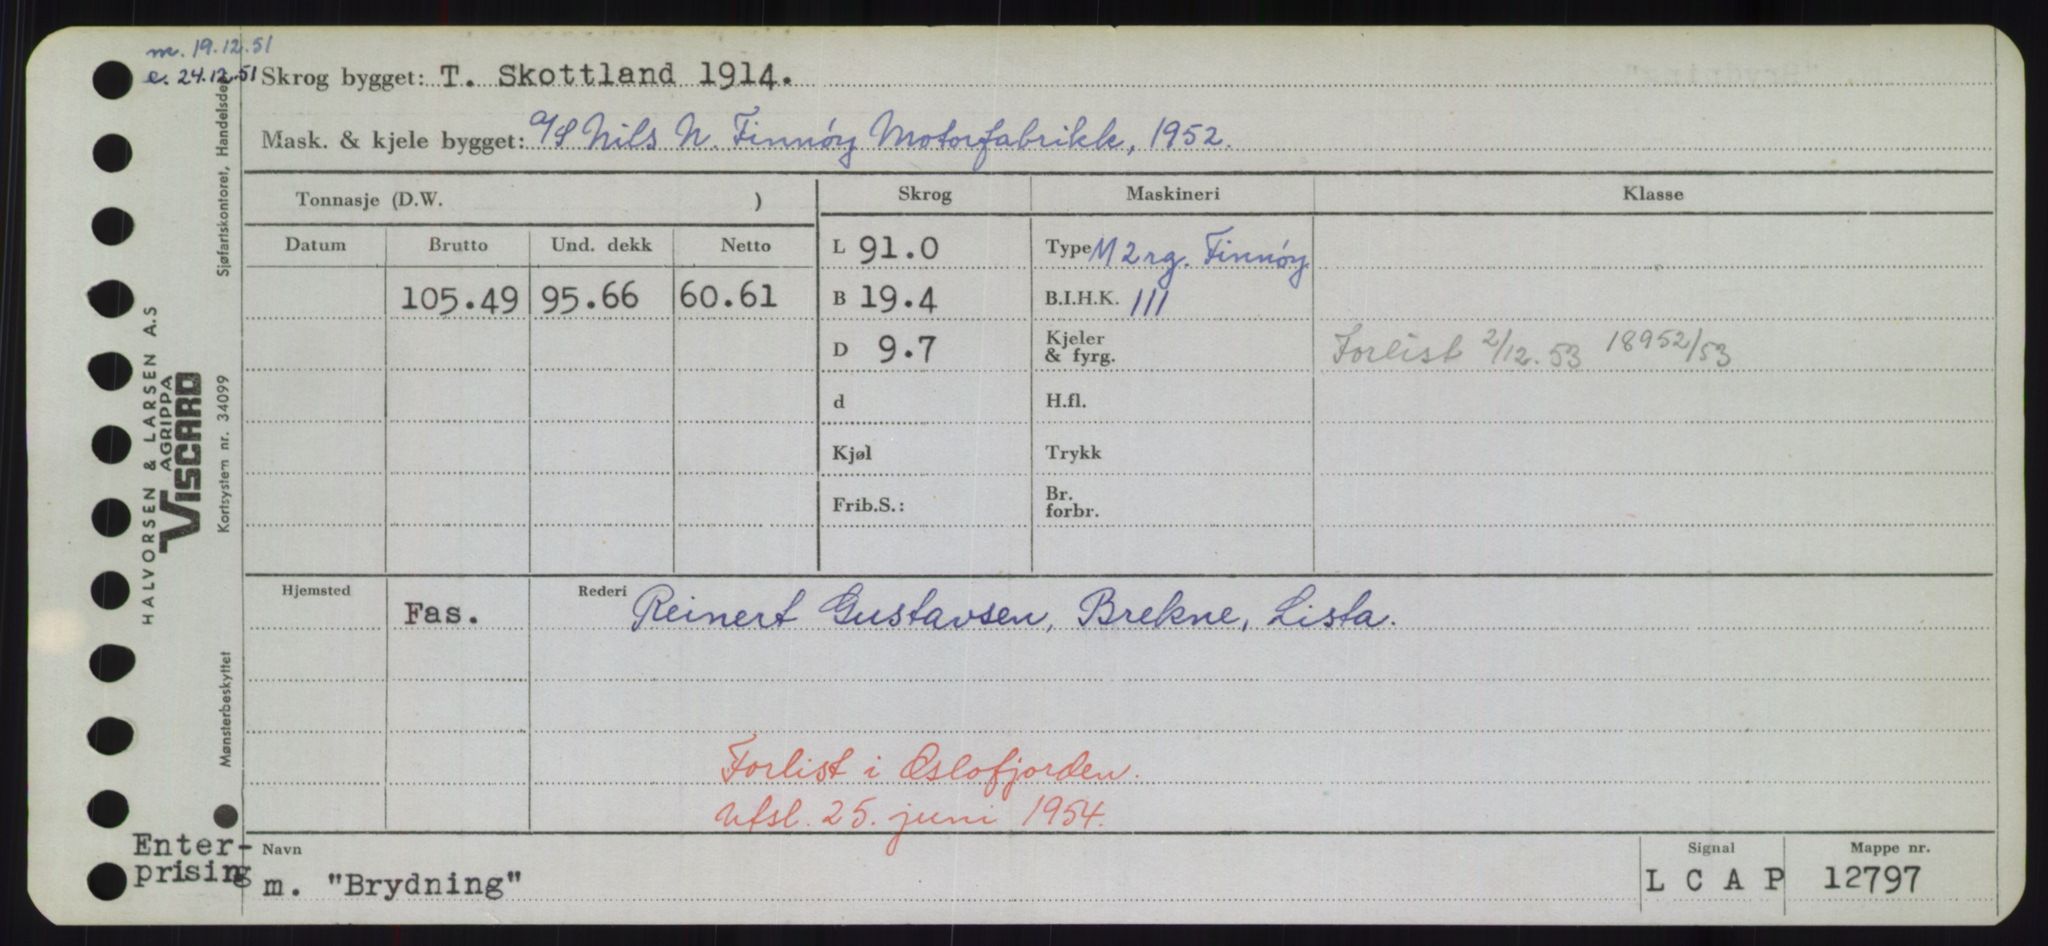 m. 19.12.51
e. 24.12.51
Skrog bygget: T. Skottland 1914.
Mask. & kjele bygget: A/S Nils N. Finnøy Motorfabrikk, 1952.
Tonnasje (D.W. )
Skrog
Maskineri
Klasse
Datum
Brutto
Und. dekk
Netto
105.49
95.66
60.61
L 91.0
B 19.4
D 9.7
d
Kjøl
Frib.S.:
Type M 2rg. Finnøy
B.I.H.K. 111
Kjeler
& fyrg.
H.fl.
Trykk
Br.
forbr.
Forlist 2/12.53 18952/53
Hjemsted
Fas.
Rederi
Reinert Gustavsen, Brekne, Lista.
Forlist i Oslofjorden.
Utsl. 25. juni 1954.
Enter-
prising
Navn
m. "Brydning"
Signal
L C A P
Mappe nr.
12797
HALVORSEN & LARSEN A.S
AGRIPPA
VISCARD
Sjøfartskontoret, Handelsdep
Kortsystem nr. 34099
Mønsterbeskyttet